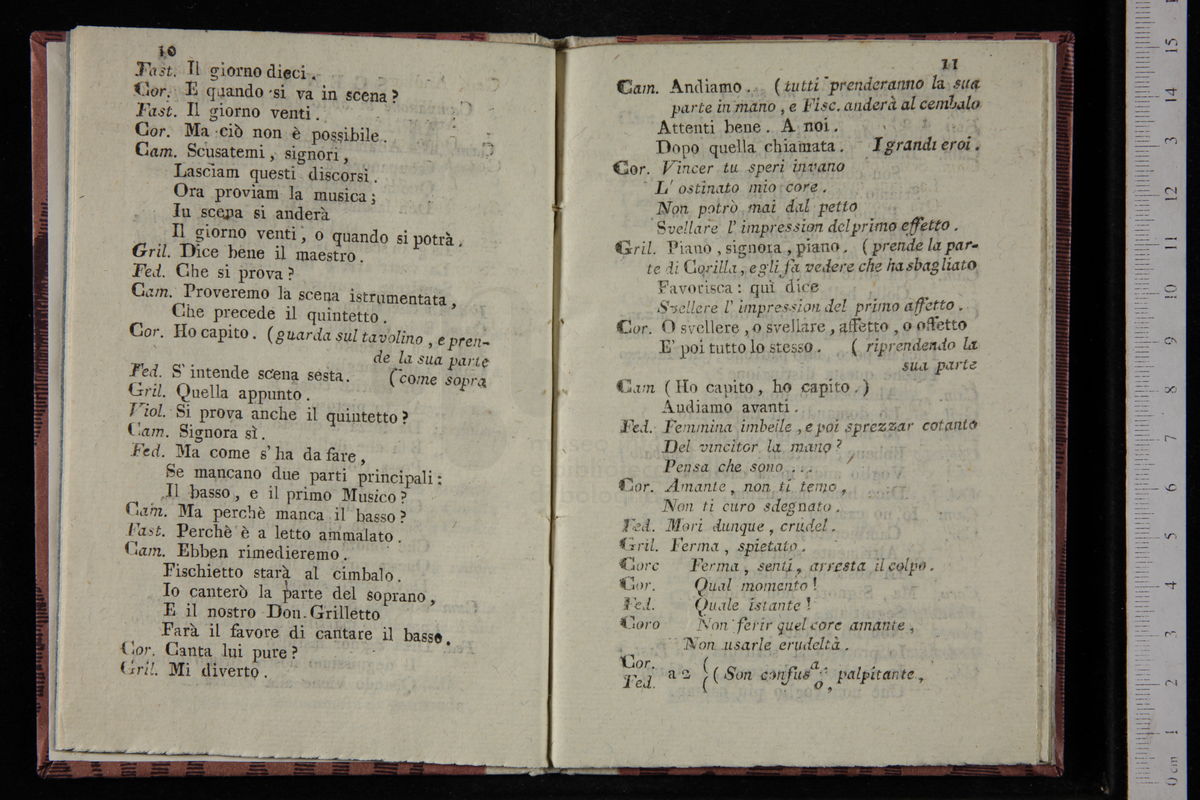 10
Fast. Il giorno dieci.
Cor. E quando si va in scena?
Fast. Il giorno venti.
Cor. Ma ciò non è possibile.
Cam. Scusatemi, signori,
Lasciam questi discorsi.
Ora proviam la musica;
In scena si anderà
Il giorno venti, o quando si potrà.
Gril. Dice bene il maestro.
Fed. Che si prova?
Cam. Proveremo la scena istrumentata,
Che precede il quintetto.
Cor. Ho capito. (guarda sul tavolino, e pren-
de la sua parte
Fed. S' intende scena sesta. (come sopra
Gril. Quella appunto.
Viol. Si prova anche il quintetto?
Cam. Signora sì.
Fed. Ma come s' ha da fare,
Se mancano due parti principali:
Il basso, e il primo Musico?
Cam. Ma perchè manca il basso?
Fast. Perchè è a letto ammalato.
Cam. Ebben rimedieremo.
Fischietto starà al cimbalo.
Io canterò la parte del soprano,
E il nostro Don Grilletto
Farà il favore di cantare il basso.
Cor. Canta lui pure?
Gril. Mi diverto.
11
Cam. Andiamo. (tutti prenderanno la sua
parte in mano, e Fisc. anderà al cembalo
Attenti bene. A noi.
Dopo quella chiamata. I grandi eroi.
Cor. Vincer tu speri invano
L' ostinato mio core.
Non potrò mai dal petto
Svellare l' impression del primo effetto.
Gril. Piano, signora, piano. (prende la par-
te di Corilla, e gli fa vedere che ha sbagliato
Favorisca: quì dice
Svellere l' impression del primo affetto.
Cor. O svellere, o svellare, affetto, o offetto
E' poi tutto lo stesso. (riprendendo la
sua parte
Cam (Ho capito, ho capito.)
Andiamo avanti.
Fed. Femmina imbelle, e poi sprezzar cotanto
Del vincitor la mano?
Pensa che sono ...
Cor. Amante, non ti temo,
Non ti curo sdegnato.
Fed. Mori dunque, crudel.
Gril. Ferma, spietato.
Corc Ferma, senti, arresta il colpo.
Cor. Qual momento!
Fed. Quale istante!
Coro Non ferir quel core amante,
Non usarle crudeltà.
Cor.
Fed. a 2 ( Son confus a o, palpitante,